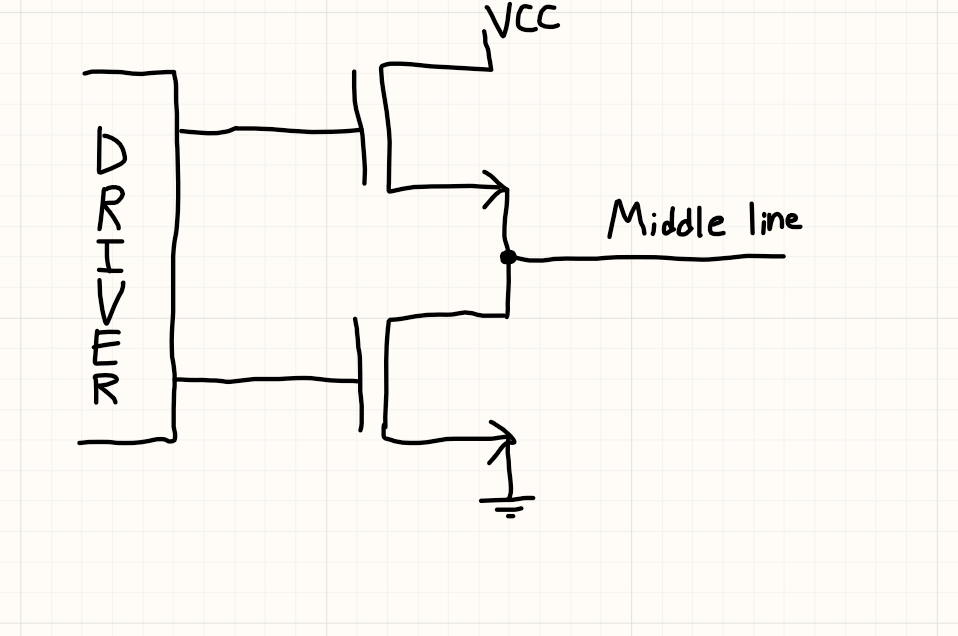 VCC
DRIVER
Middle line